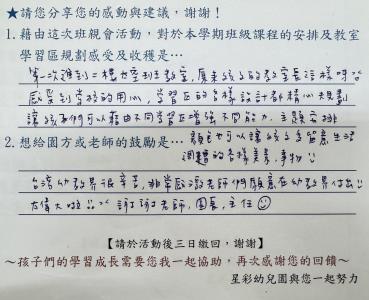 ★請您分享您的感動與建議，謝謝！
1. 藉由這次班親會活動，對於本學期班級課程的安排及教室
學習區規劃感受及收穫是…
第一次進到二樓
感受到學校的用心，學習區的各樣設計都精心規劃
讓孩子們可以藉由不同學習區增強不同能力，主題安排
2. 想給園方或老師的鼓勵是…
可以讓孩子多留意生活
週遭的各樣美景、事物
台灣幼教界很辛苦，非常感激老師們願意在幼教界付出
太偉大啦 謝謝老師、園長、主任
【請於活動後三日繳回，謝謝】
～孩子們的學習成長需要您我一起協助，再次感謝您的回饋～
星彩幼兒園與您一起努力